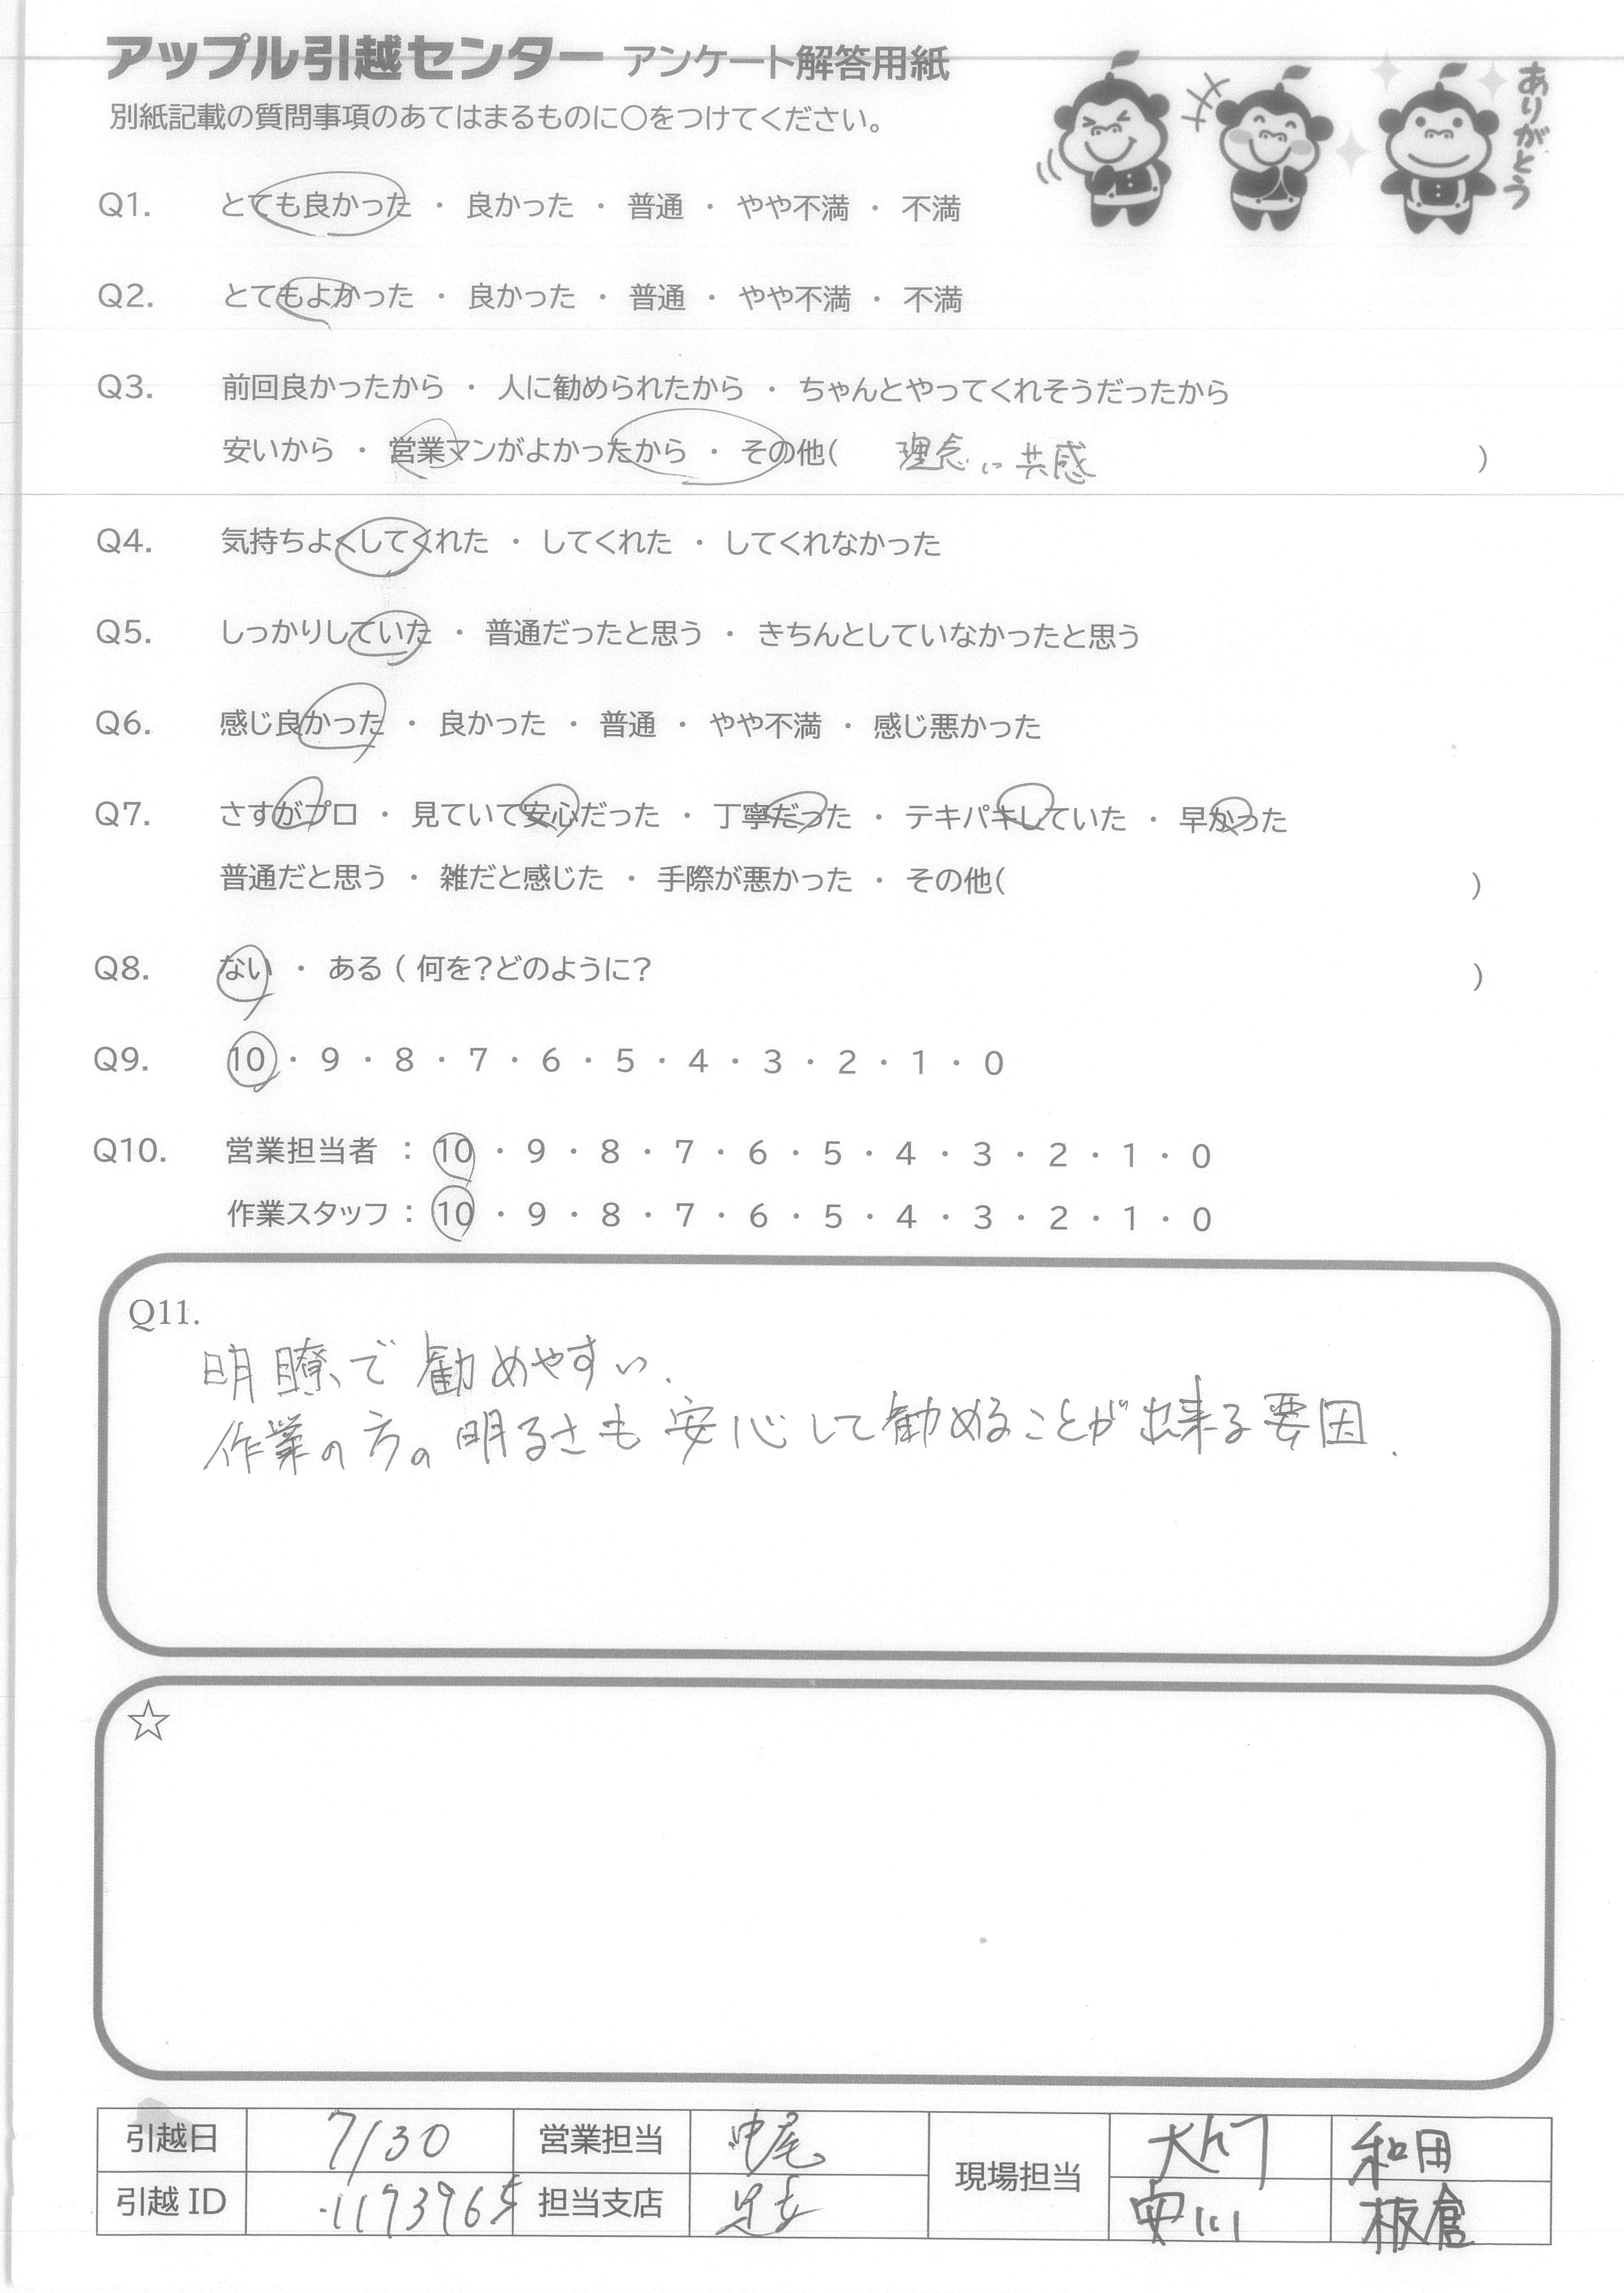 アップル引越センター アンケート解答用紙
別紙記載の質問事項のあてはまるものに○をつけてください。
ありがとう
Q1. とても良かった ・ 良かった ・ 普通 ・ やや不満 ・ 不満
Q2. とてもよかった ・ 良かった ・ 普通 ・ やや不満 ・ 不満
Q3. 前回良かったから ・ 人に勧められたから ・ ちゃんとやってくれそうだったから
安いから ・ 営業マンがよかったから ・ その他( 理念に共感 )
Q4. 気持ちよくしてくれた ・ してくれた ・ してくれなかった
Q5. しっかりしていた ・ 普通だったと思う ・ きちんとしていなかったと思う
Q6. 感じ良かった ・ 良かった ・ 普通 ・ やや不満 ・ 感じ悪かった
Q7. さすがプロ ・ 見ていて安心だった ・ 丁寧だった ・ テキパキしていた ・ 早かった
普通だと思う ・ 雑だと感じた ・ 手際が悪かった ・ その他( )
Q8. ない ・ ある ( 何を?どのように? )
Q9. 10 ・ 9 ・ 8 ・ 7 ・ 6 ・ 5 ・ 4 ・ 3 ・ 2 ・ 1 ・ 0
Q10. 営業担当者 : 10 ・ 9 ・ 8 ・ 7 ・ 6 ・ 5 ・ 4 ・ 3 ・ 2 ・ 1 ・ 0
作業スタッフ : 10 ・ 9 ・ 8 ・ 7 ・ 6 ・ 5 ・ 4 ・ 3 ・ 2 ・ 1 ・ 0
Q11.
明瞭で勧めやすい.
作業の方の明るさも安心して勧めることが出来る要因.
☆
引越日 7/30 営業担当 中尾 現場担当 和田
引越 ID 1193965 担当支店 足立 安川 板倉